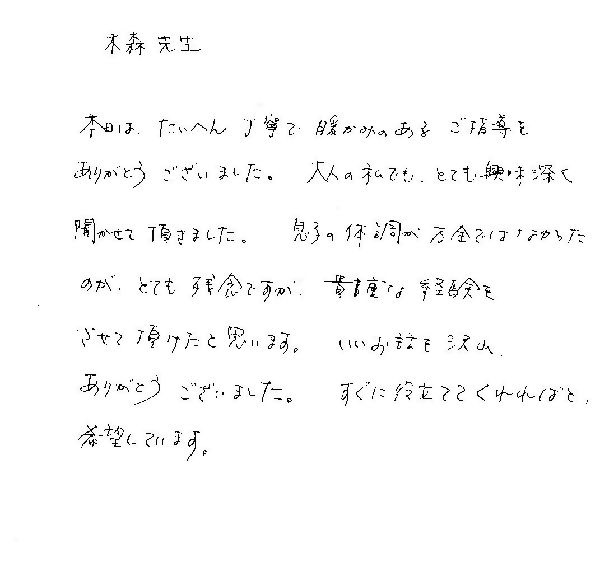 木森 先生
本日は、たいへん 丁寧で 暖かみのある ご指導を
ありがとう ございました。 大人の私でも、とても興味深く
聞かせて 頂きました。 息子の体調が 万全ではなかった
のが、とても 残念ですが、貴重な 経験を
させて 頂けたと思います。 いいお話を 沢山、
ありがとう ございました。 すぐに役立ててくれればと、
希望しています。